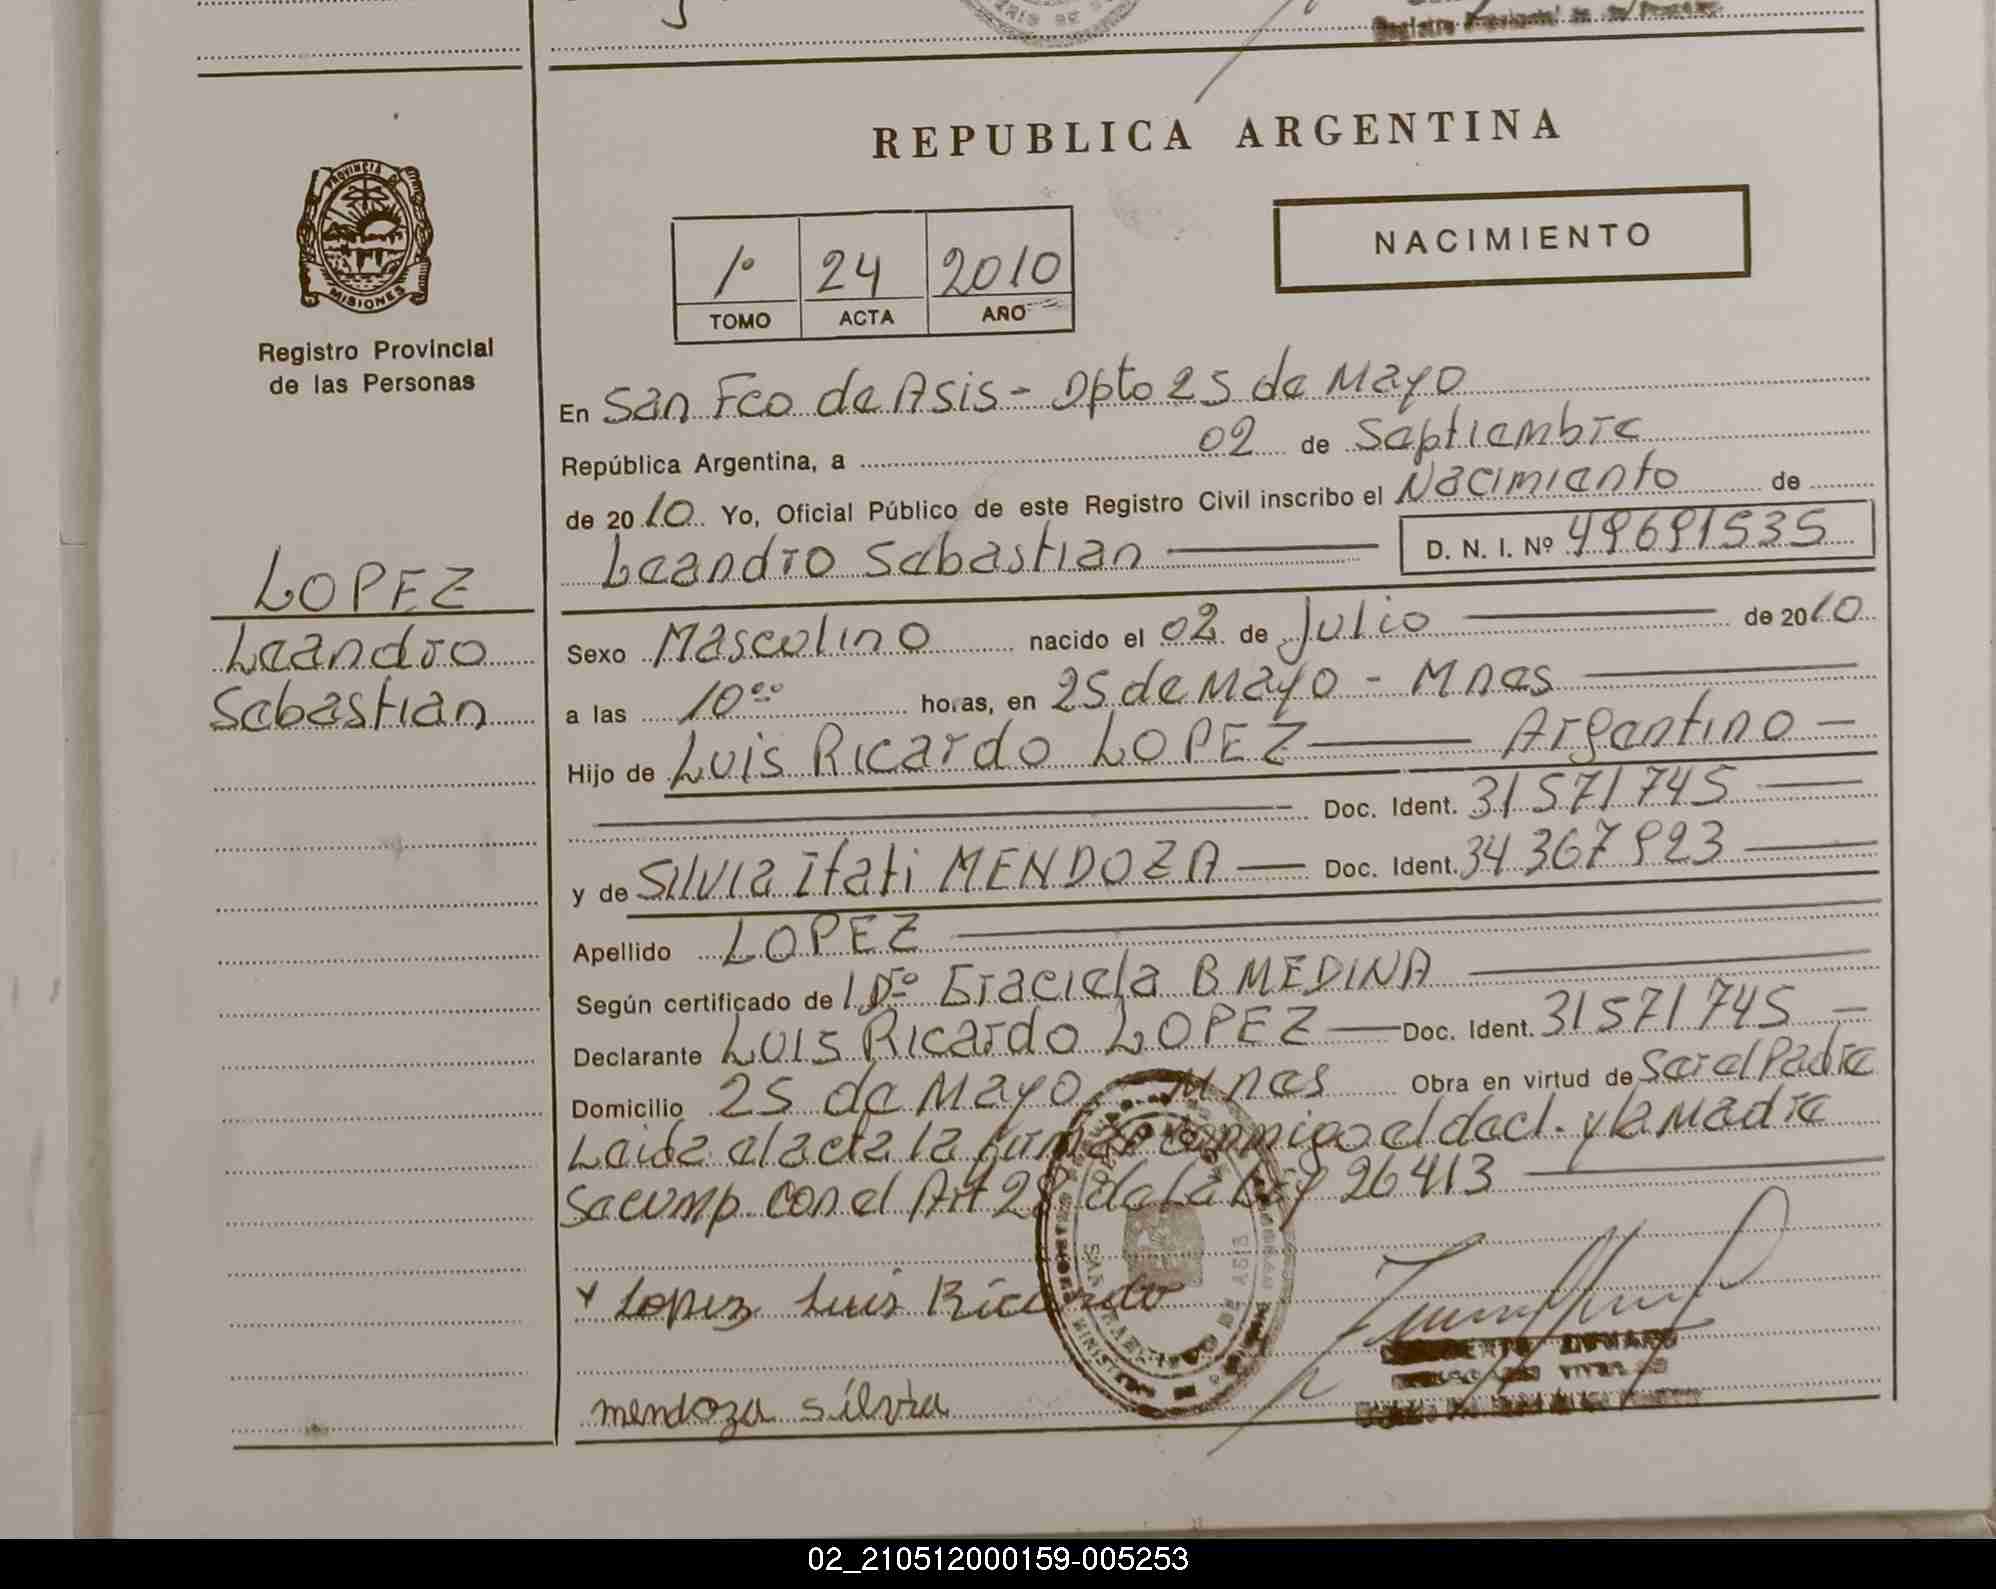 REPUBLICA ARGENTINA
PROVINCIA DE
MISIONES
Registro Provincial
de las Personas
1º 24 2010
TOMO ACTA AÑO
NACIMIENTO
En San Fco de Asis - Dpto 25 de Mayo
República Argentina, a 02 de Septiembre
de 2010 Yo, Oficial Público de este Registro Civil inscribo el Nacimiento de
Leandro Sebastian D. N. I. Nº 49691535
LOPEZ
Leandro
Sebastian
Sexo Mascolino nacido el 02 de Julio de 2010
a las 10⁰⁰ horas, en 25 de Mayo - Mnes
Hijo de Luis Ricardo LOPEZ Argentino
Doc. Ident. 31571745
y de Silvia Itati MENDOZA Doc. Ident. 34367923
Apellido LOPEZ
Según certificado de Graciela B MEDINA
Declarante Luis Ricardo LOPEZ Doc. Ident. 31571745
Domicilio 25 de Mayo Mnes Obra en virtud de Ser el Padre
Leida el acta la firma conmigo el decl. y la Madre
Se cump. con el Art 28 de la Ley 26413
Lopez Luis Ricardo
SAN FRANCISCO DE ASIS
mendoza silvia
02_210512000159-005253